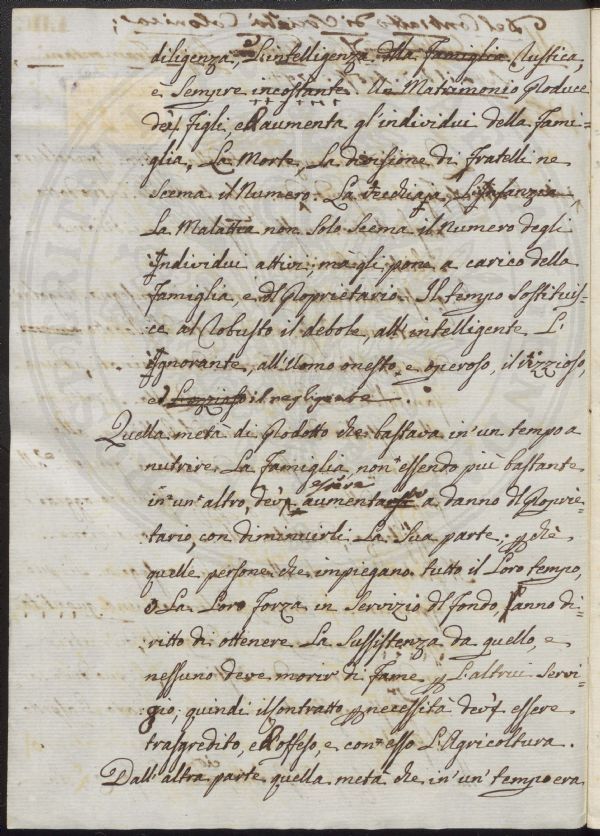 diligenza, L'intelligenza della famiglia Rustica,
è sempre incostante. Un Matrimonio Produce
dei figli, ed aumenta gl'individui della Fami=
glia, La Morte, La divisione di fratelli ne
scema il Numero. La vecchiaja, L'infanzia
La Malattia non solo scema il Numero degli
Individui attivi, ma gli pone a carico della
famiglia e dl Proprietario. Il tempo sostituis=
ce al Robusto il debole, all'intelligente L'
Ignorante, all'Uomo onesto, e operoso, il vizzioso,
ed il negligente.
Quella metà di Prodotto che bastava in'un tempo a
nutrire La famiglia non essendo più bastante
in un'altro, dev' essere aumentata a danno dl Proprie=
tario, con diminuirli La sua parte; pchè
quelle persone che impiegano tutto il Loro tempo,
e La Loro forza in servizio dl fondo, anno di=
ritto di ottenere La sussistenza da quello, e
nessuno deve morir di fame p L'altrui servi=
gio; quindi il Contratto p necessità dev' essere
trasgredito, ed offeso, e con esso L'Agricoltura.
Dall'altra parte quella metà che in'un'tempo era